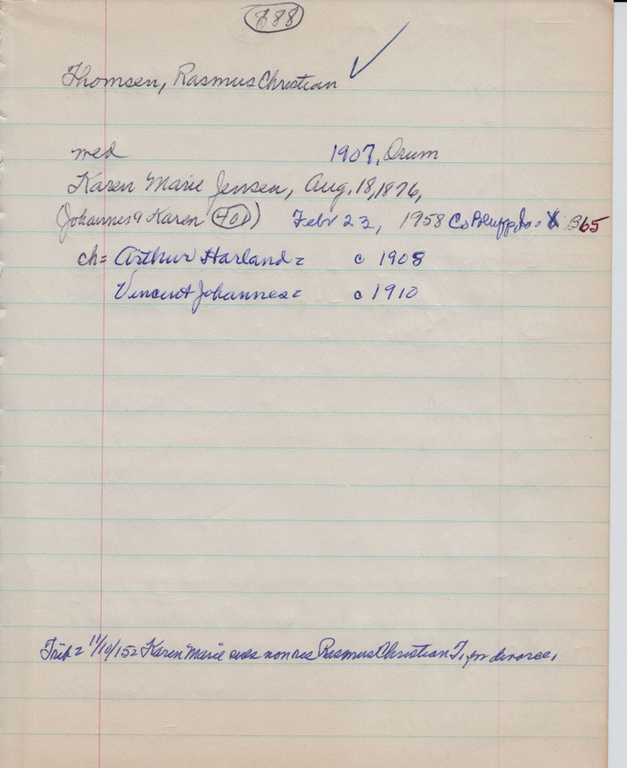 888
Thomsen, Rasmus Christian ✓
med 1907, Orum
Karen Marie Jensen, Aug. 18, 1876,
Johannes & Karen (401) Febr 23, 1958 Co Bluffs, Ia = B65
ch = Arthur Harland = c 1908
Vincent Johannes = c 1910
Trib = 11/10/15 = Karen Marie sues nonres Rasmus Christian T, for divorce,